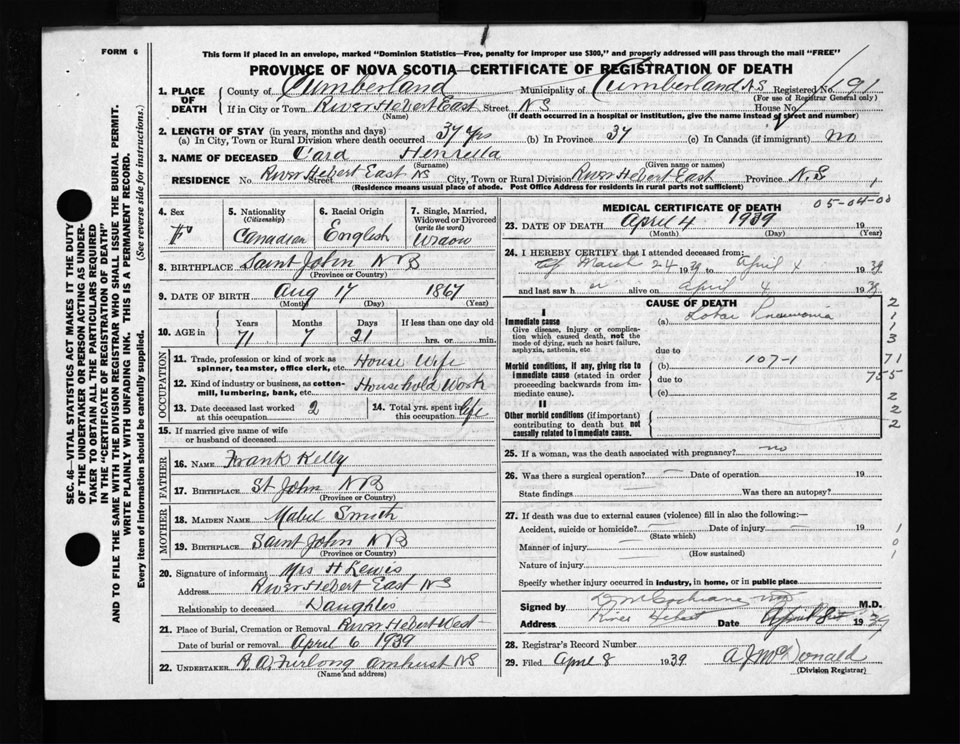 FORM 6
This form if placed in an envelope, marked "Dominion Statistics—Free, penalty for improper use $300," and properly addressed will pass through the mail "FREE"
PROVINCE OF NOVA SCOTIA—CERTIFICATE OF REGISTRATION OF DEATH
1. PLACE OF DEATH County of Cumberland Municipality of Cumberland N.S Registered No. 191
(For use of Registrar General only)
If in City or Town River Hebert East Street NS House No.
(Name) (If death occurred in a hospital or institution, give the name instead of street and number)
2. LENGTH OF STAY (in years, months and days)
(a) In City, Town or Rural Division where death occurred 37 yrs (b) In Province 37 (c) In Canada (if immigrant) no
3. NAME OF DECEASED Card Henrietta
(Surname) (Given name or names)
RESIDENCE No. River Hebert East NS Street City, Town or Rural Division River Hebert East Province N.S
(Residence means usual place of abode. Post Office Address for residents in rural parts not sufficient)
4. Sex F
5. Nationality (Citizenship) Canadian
6. Racial Origin English
7. Single, Married, Widowed or Divorced (write the word) Widow
8. BIRTHPLACE Saint John N B
(Province or Country)
9. DATE OF BIRTH Aug 17 1867
(Month) (Day) (Year)
10. AGE in Years Months Days If less than one day old
71 7 21 hrs. or min.
OCCUPATION
11. Trade, profession or kind of work as spinner, teamster, office clerk, etc. House Wife
12. Kind of industry or business, as cotton-mill, lumbering, bank, etc. Household Work
13. Date deceased last worked at this occupation 2
14. Total yrs. spent in this occupation life
15. If married give name of wife or husband of deceased
FATHER
16. NAME Frank Kelly
17. BIRTHPLACE St John N B
(Province or Country)
MOTHER
18. MAIDEN NAME Mabel Smith
19. BIRTHPLACE Saint John N B
(Province or Country)
20. Signature of informant Mrs H Lewis
Address River Hebert East NS
Relationship to deceased Daughter
21. Place of Burial, Cremation or Removal River Hebert West
Date of burial or removal April 6 1939
22. UNDERTAKER R. A. Furlong Amherst NS
(Name and address)
MEDICAL CERTIFICATE OF DEATH 05-04-00
23. DATE OF DEATH April 4 1939 19
(Month) (Day) (Year)
24. I HEREBY CERTIFY that I attended deceased from:
March 24 1939 to April 4 1939
and last saw h er alive on April 4 1939
CAUSE OF DEATH
I
Immediate cause (a) Lobar Pneumonia
Give disease, injury or complication which caused death, not the mode of dying, such as heart failure, asphyxia, asthenia, etc
due to
Morbid conditions, if any, giving rise to immediate cause (stated in order proceeding backwards from immediate cause). (b) 107-1
due to
(c)
II
Other morbid conditions (if important) contributing to death but not causally related to immediate cause.
2
1
1
3
71
755
2
2
2
25. If a woman, was the death associated with pregnancy? no
26. Was there a surgical operation? Date of operation 19
State findings Was there an autopsy?
27. If death was due to external causes (violence) fill in also the following:—
Accident, suicide or homicide? Date of injury 19
(State which)
Manner of injury
(How sustained)
Nature of injury
Specify whether injury occurred in industry, in home, or in public place
1
0
1
Signed by D M Cochrane M.D.
Address River Hebert Date April 8 1939
28. Registrar's Record Number
29. Filed April 8 1939 A J McDonald
(Division Registrar)
SEC. 46—VITAL STATISTICS ACT MAKES IT THE DUTY
OF THE UNDERTAKER OR PERSON ACTING AS UNDER-
TAKER TO OBTAIN ALL THE PARTICULARS REQUIRED
IN THE "CERTIFICATE OF REGISTRATION OF DEATH"
AND TO FILE THE SAME WITH THE DIVISION REGISTRAR WHO SHALL ISSUE THE BURIAL PERMIT.
WRITE PLAINLY WITH UNFADING INK. THIS IS A PERMANENT RECORD.
Every item of information should be carefully supplied. (See reverse side for instructions.)